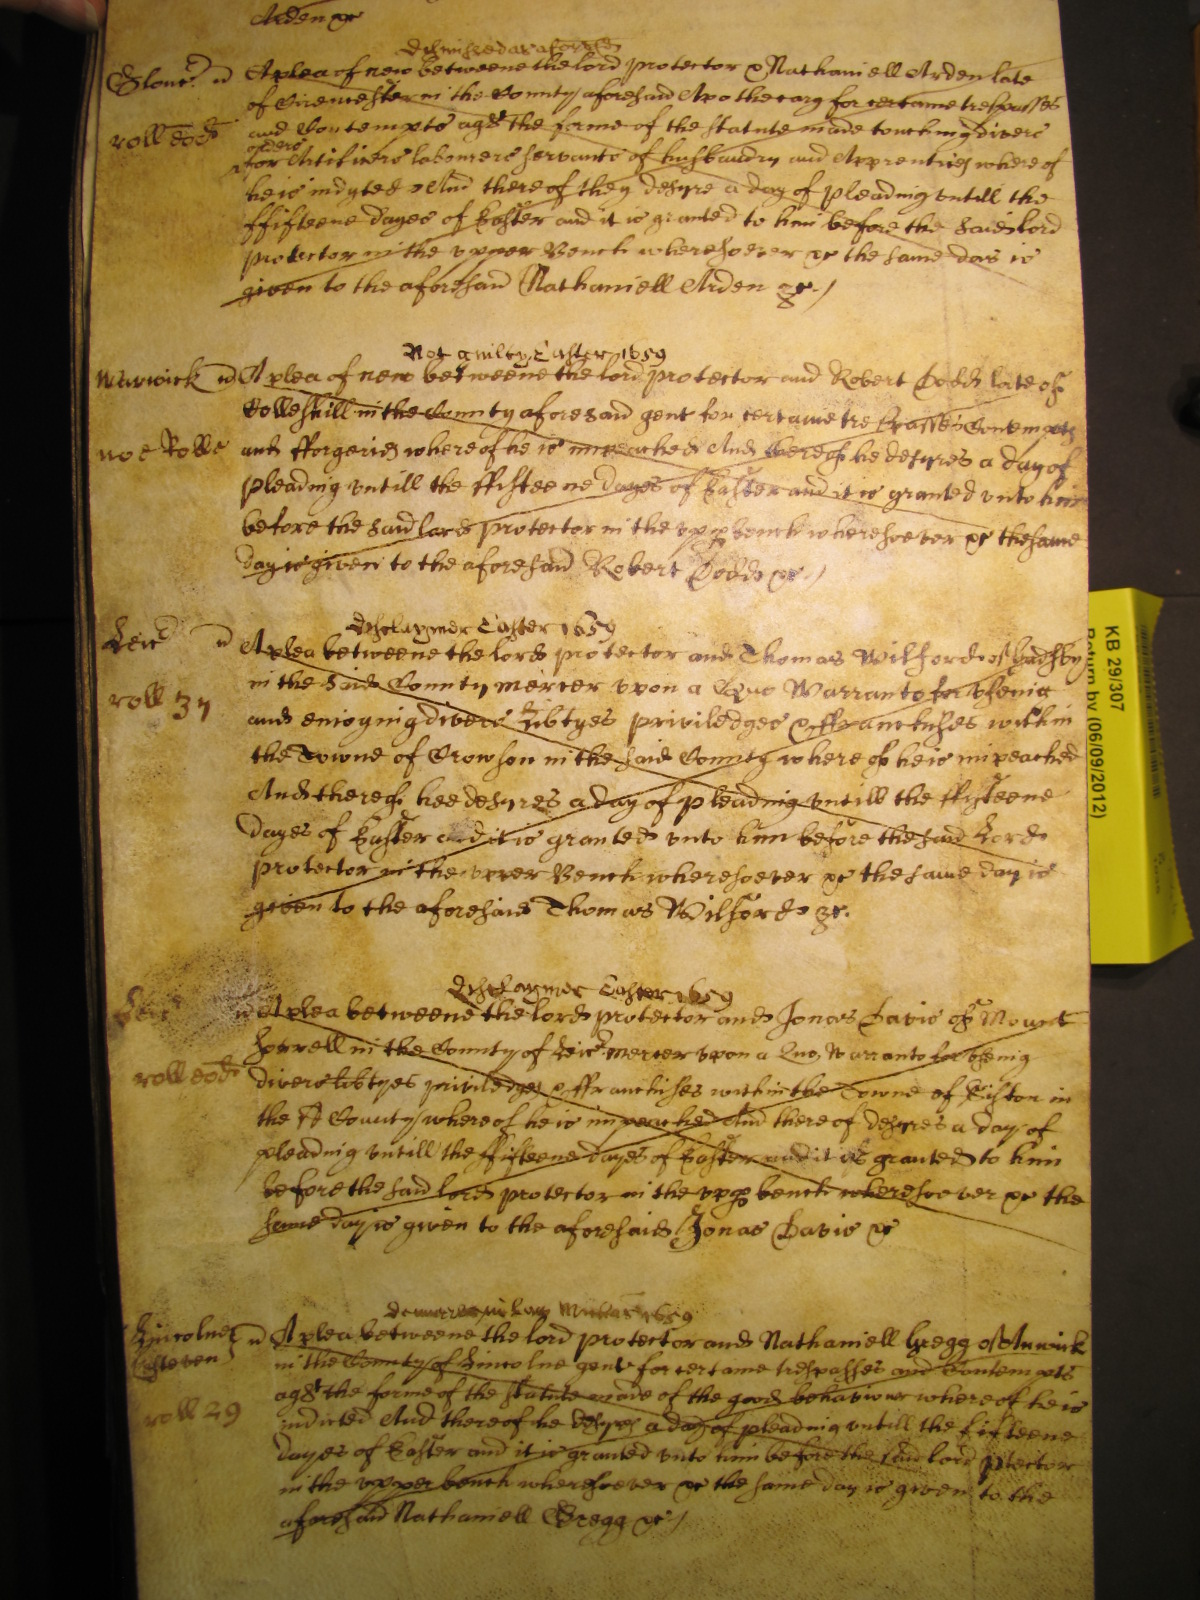 Arden &c
dismissed as aforesd
Glouc' A plea of new betweene the lord protector & Nathaniell Arden late
of Cirencester in the County aforesaid Apothecary for certaine trespasses
roll eod' and Contempts agt the forme of the statute made touching divers
orders
for Artificers labourers servants of husbandry and Apprentices whereof
he is indyted And thereof they desyre a day of pleading untill the
ffifteene dayes of Easter and it is granted to him before the said lord
protector in the upper Bench wheresoever &c the same day is
given to the aforesaid Nathaniell Arden &c
Not guilty Easter 1659
Warwick A plea of new betweene the lord protector and Robert Dodd late of
Colleshill in the County aforesaid gent for certaine trespasses Contempts
noe Rolle and fforgeries whereof he is impeached And thereof he desyres a day of
pleading untill the ffifteene dayes of Easter and it is granted unto him
before the said lord protector in the upp bench wheresoever &c the same
day is given to the aforesaid Robert Dodd &c
disclaymer Easter 1659
Leic' A plea betweene the lord protector and Thomas Wilford of
in the said County mercer upon a Quo Warranto for useing
roll 37 and enioying divers libtyes priviledges & ffranchises within
the Towne of Crowson in the said County whereof he is impeached
And thereof hee desyres a day of pleading untill the ffifteene
dayes of Easter and it is granted unto him before the said Lord
protector in the upper Bench wheresoever &c the same day is
given to the aforesaid Thomas Wilford &c.
disclaymer Easter 1659
Leic' A plea betweene the lord protector and Jonas Davis of Mount
Sorrell in the County of Leic' mercer upon a Quo Warranto for useing
roll eod' divers libtyes priviledges & ffranchises within the Towne of in
the sd County whereof he is impeached And thereof desyres a day of
pleading untill the ffifteene dayes of Easter and it is granted to him
before the said lord protector in the upp bench wheresoever &c the
same day is given to the aforesaid Jonas Davis &c
Michas 1659
Lincolne A plea betweene the lord protector and Nathaniell Gregg of Anwick
Kesteven in the County of Lincolne gent for certaine trespasses and Contempts
agt the forme of the statute made of the good behaviour whereof he is
roll 29 indicted And thereof he desyres a day of pleading untill the fifteene
dayes of Easter and it is granted unto him before the said lord ptector
in the upper bench wheresoever &c the same day is given to the
aforesaid Nathaniell Gregg &c
KB 29/307
Return by (06/09/2012)